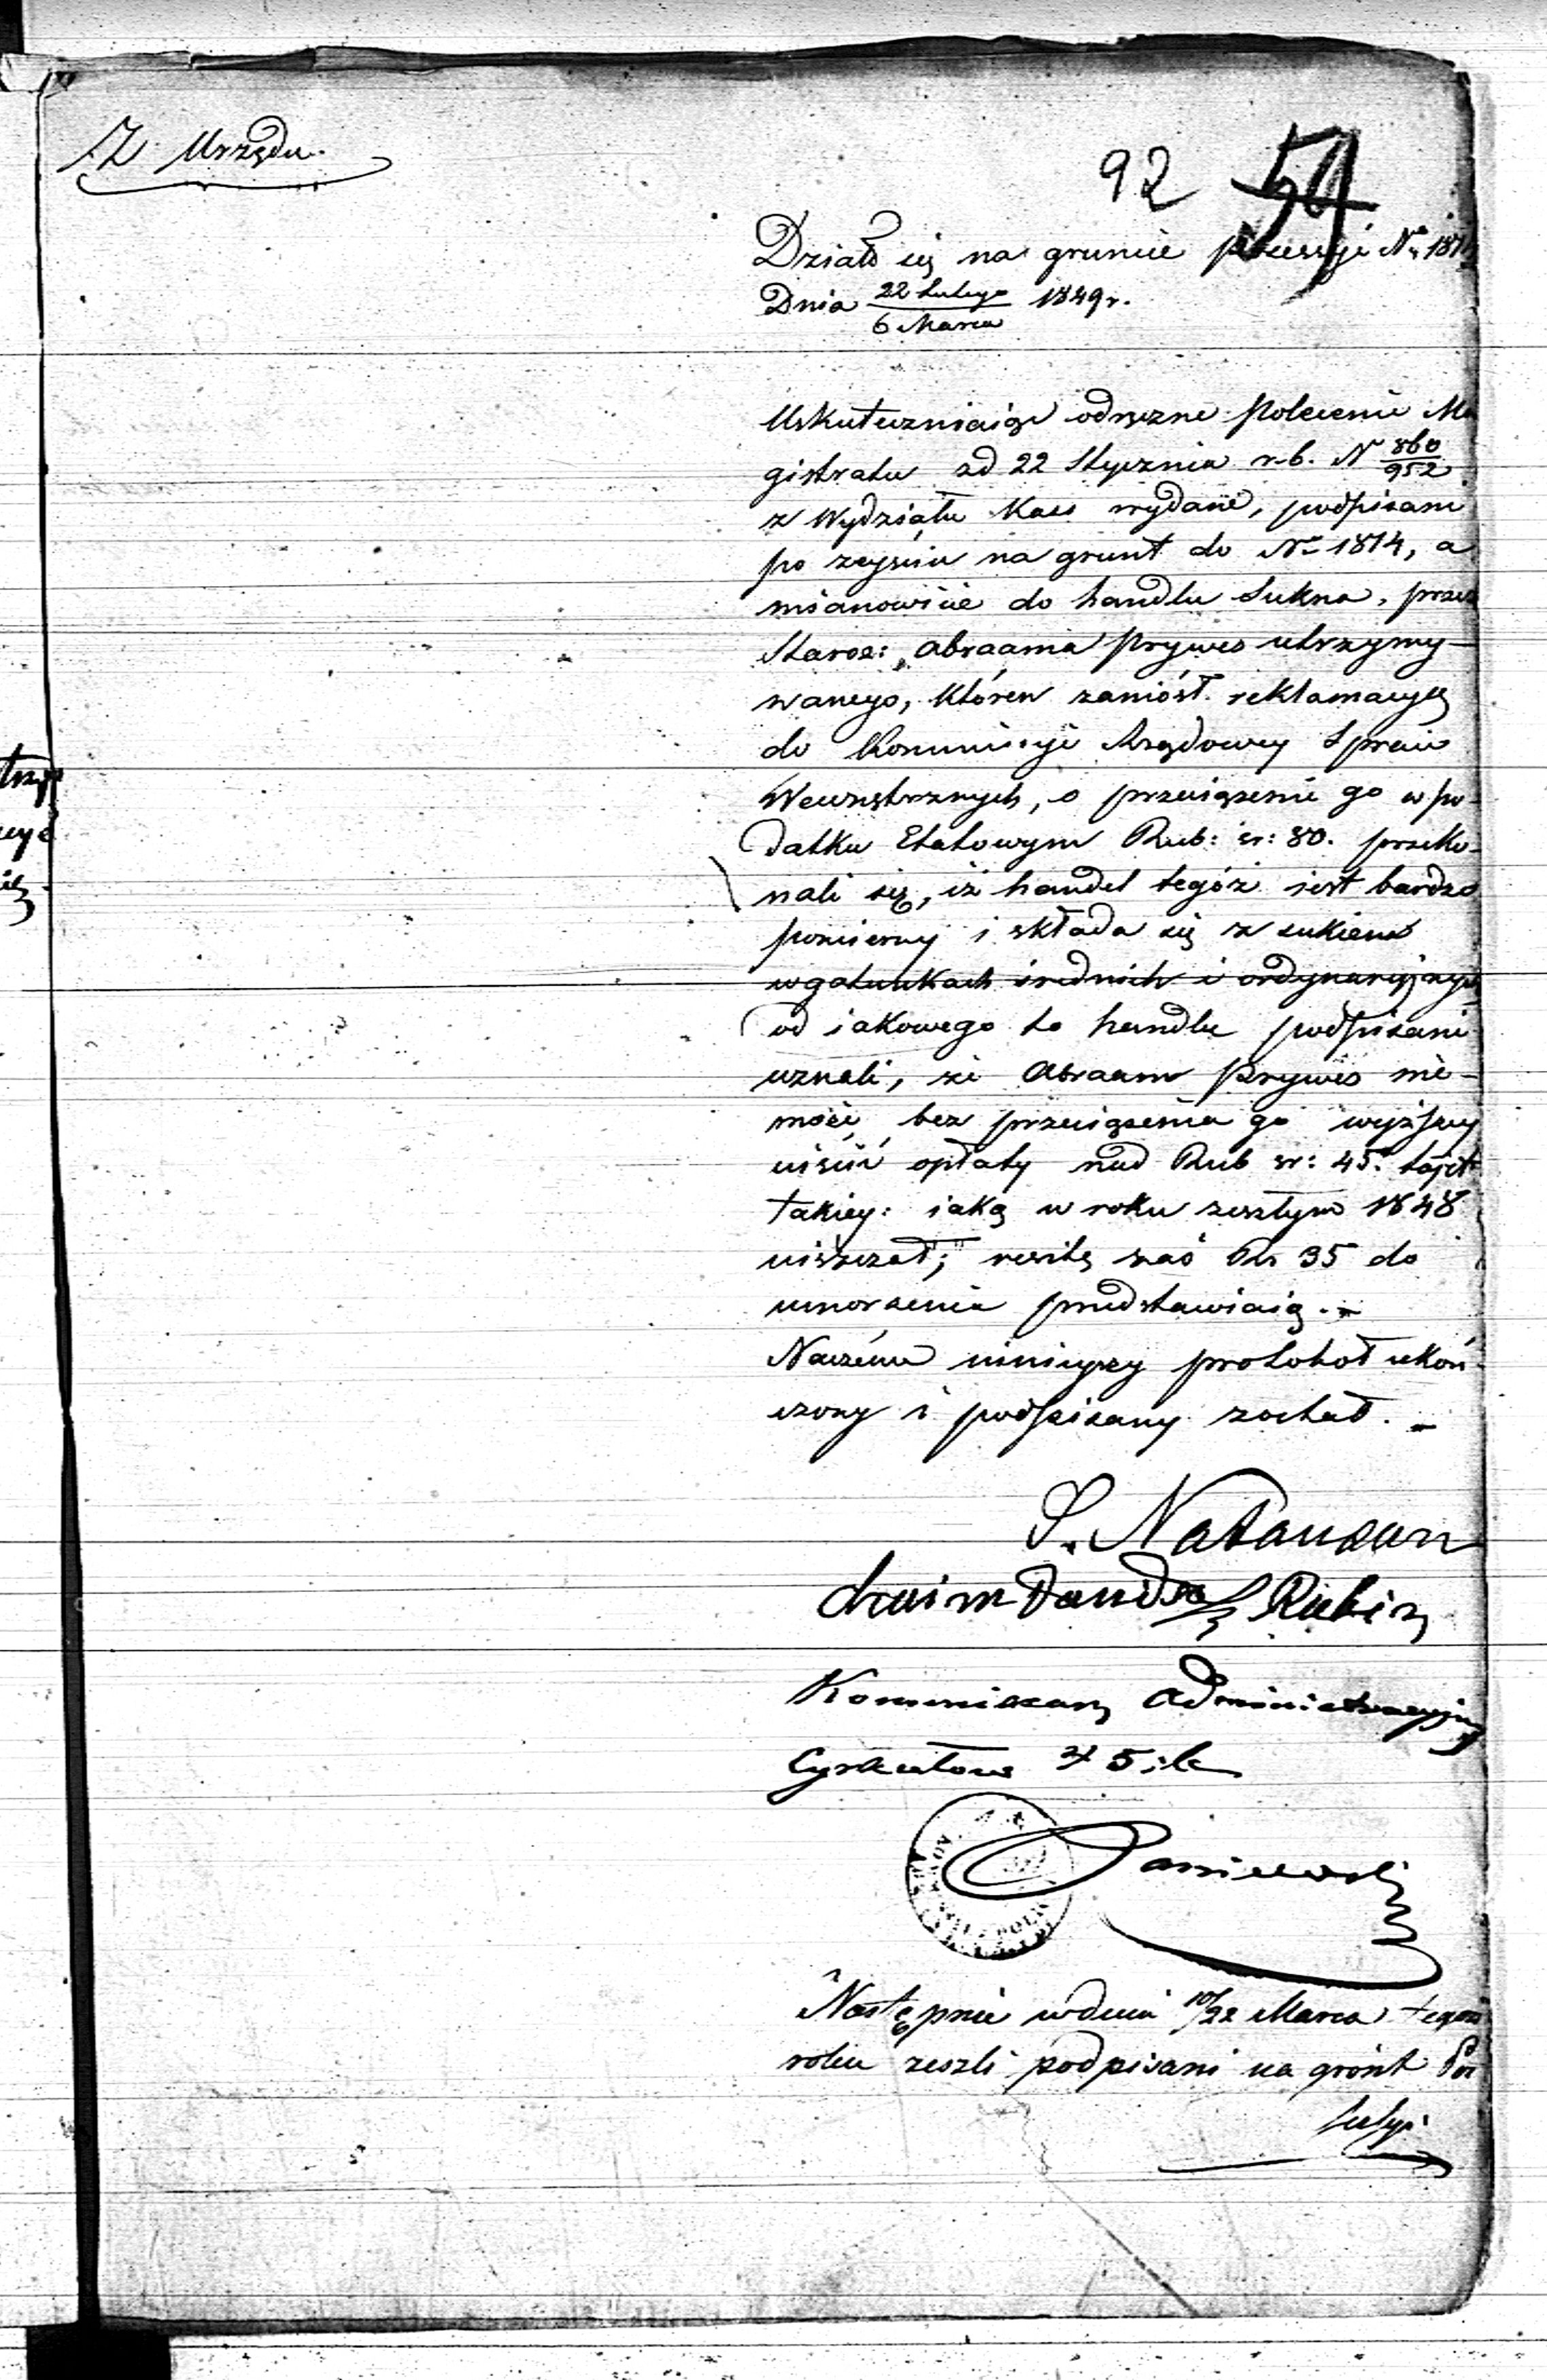 Z Urzędu.
92 59
Działo się na gruncie possessyi Nr 1814
Dnia 22 Lutego / 6 Marca 1849 r.
Uskuteczniaiąc odręczne polecenie Ma
gistratu ad 22 Stycznia r. b. N 860/952
z Wydziału Kass wydane, podpisani
po zejściu na grunt do Nr 1814, a
mianowicie do handlu Sukna, przez
Staroz: Abraama Prywes utrzymy-
wanego, któren zaniósł reklamacyę
do Kommissyi Rządowey Spraw
Wewnętrznych, o przeciążenie go w po-
datku Etatowym Rub: sr: 80. przeko-
nali się, iż handel tegóż iest bardzo
pomierny i składa się z sukien
w gatunkach średnich i ordynaryjnych
od iakowego to handlu podpisani
uznali, że Abraam Prywes nie-
może bez przeciążenia go wyższey
uiścić opłaty nad Rub sr: 45. to jest
takiey: iaką w roku zeszłym 1848
uiszczał; resztę zaś Rs 35 do
umorzenia przedstawiaią.-
Na czém ninieyszy protokoł ukoń-
czony i podpisany został.-
S. Natanson
Chaim Dawid Rubin
Kommissarz Administracyjny
Cyrkułowy 5
Paniewski
Następnie w dniu 10/22 Marca tegoż
roku zeszli podpisani na grónt Pos
sessyi